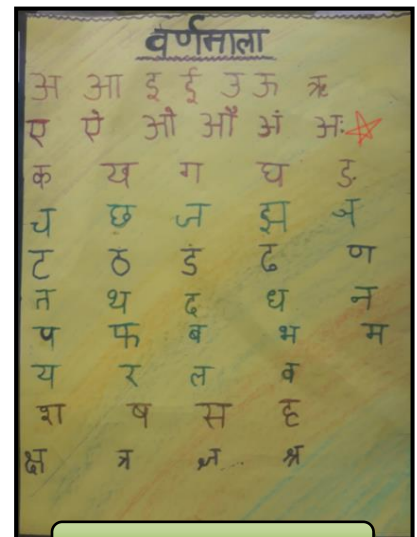 वर्णमाला
अ आ इ ई उ ऊ ऋ
ए ऐ ओ औ अं अः
क ख ग घ ङ
च छ ज झ ञ
ट ठ ड ढ ण
त थ द ध न
प फ ब भ म
य र ल व
श ष स ह
क्ष त्र ज्ञ श्र